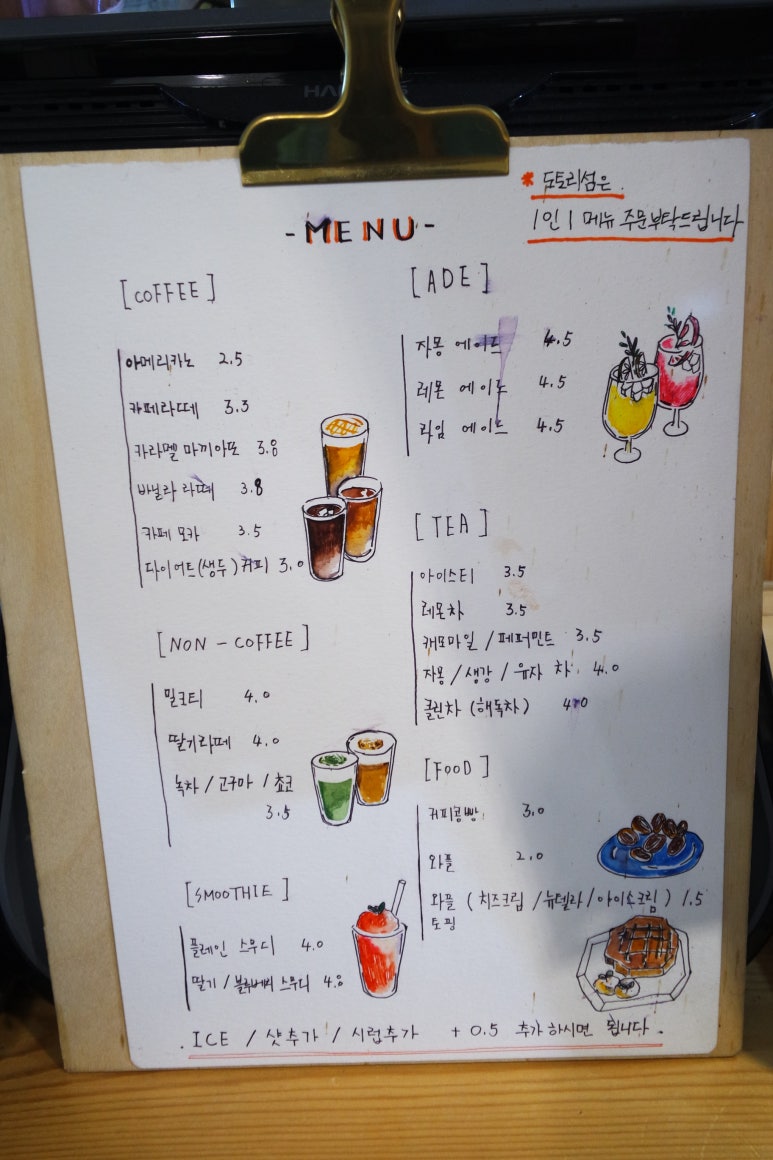 * 도토리섬은
1인 1 메뉴 주문부탁드립니다
- MENU -
[COFFEE]
아메리카노 2.5
카페라떼 3.3
카라멜 마끼아또 3.8
바닐라 라떼 3.8
카페 모카 3.5
다이어트(생두)커피 3.0
[NON - COFFEE]
밀크티 4.0
딸기라떼 4.0
녹차 / 고구마 / 쵸코
3.5
[SMOOTHIE]
플레인 스무디 4.0
딸기 / 블루베리 스무디 4.8
[ADE]
자몽 에이드 4.5
레몬 에이드 4.5
라임 에이드 4.5
[TEA]
아이스티 3.5
레몬차 3.5
캐모마일 / 페퍼민트 3.5
자몽 / 생강 / 유자 차 4.0
클린차 (해독차) 4.0
[FOOD]
커피콩빵 3.0
와플 2.0
와플 ( 치즈크림 / 뉴텔라 / 아이스크림 ) 1.5
토핑
. ICE / 샷추가 / 시럽추가 + 0.5 추가하시면 됩니다.